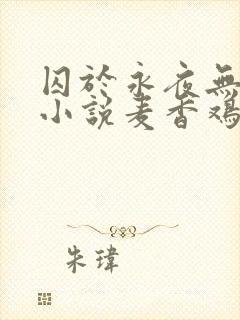 囚於永夜無
小說麦香鸡
朱瑋